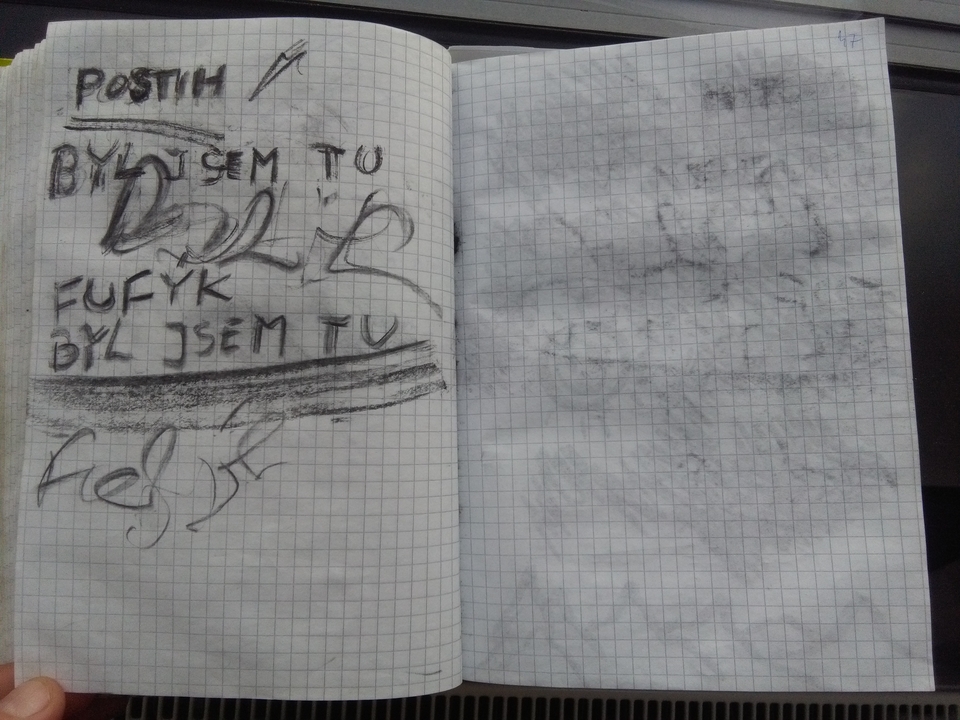 POSTIH
BYL JSEM TU
FUFYK
BYL JSEM TU
47